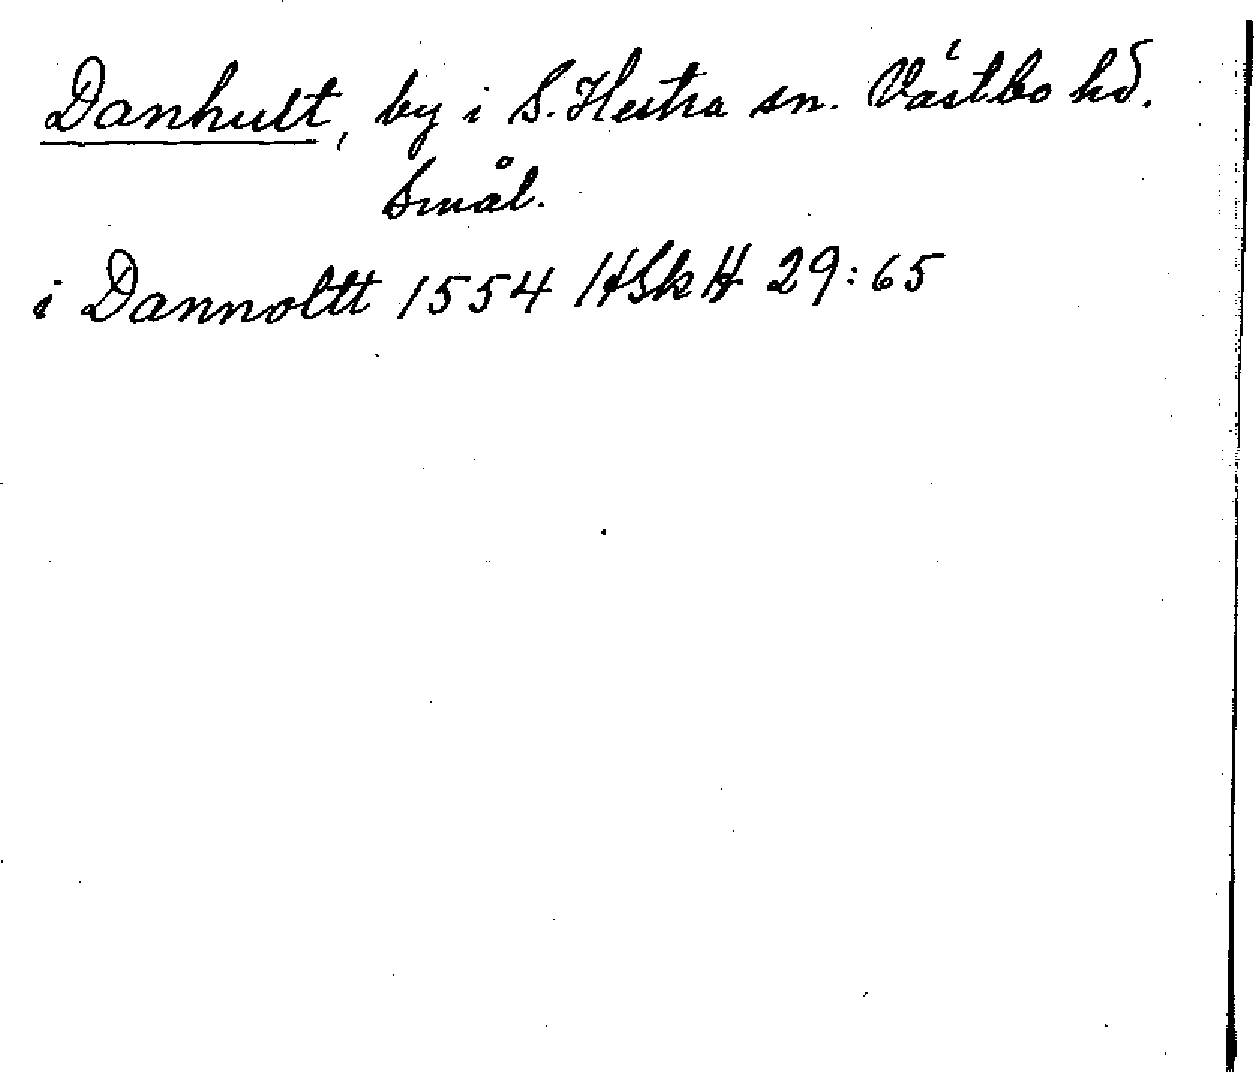 Danhult, by i S. Hestra sn. Västbo hd.
Smål.
i Dannoltt 1554 HSkH 29:65